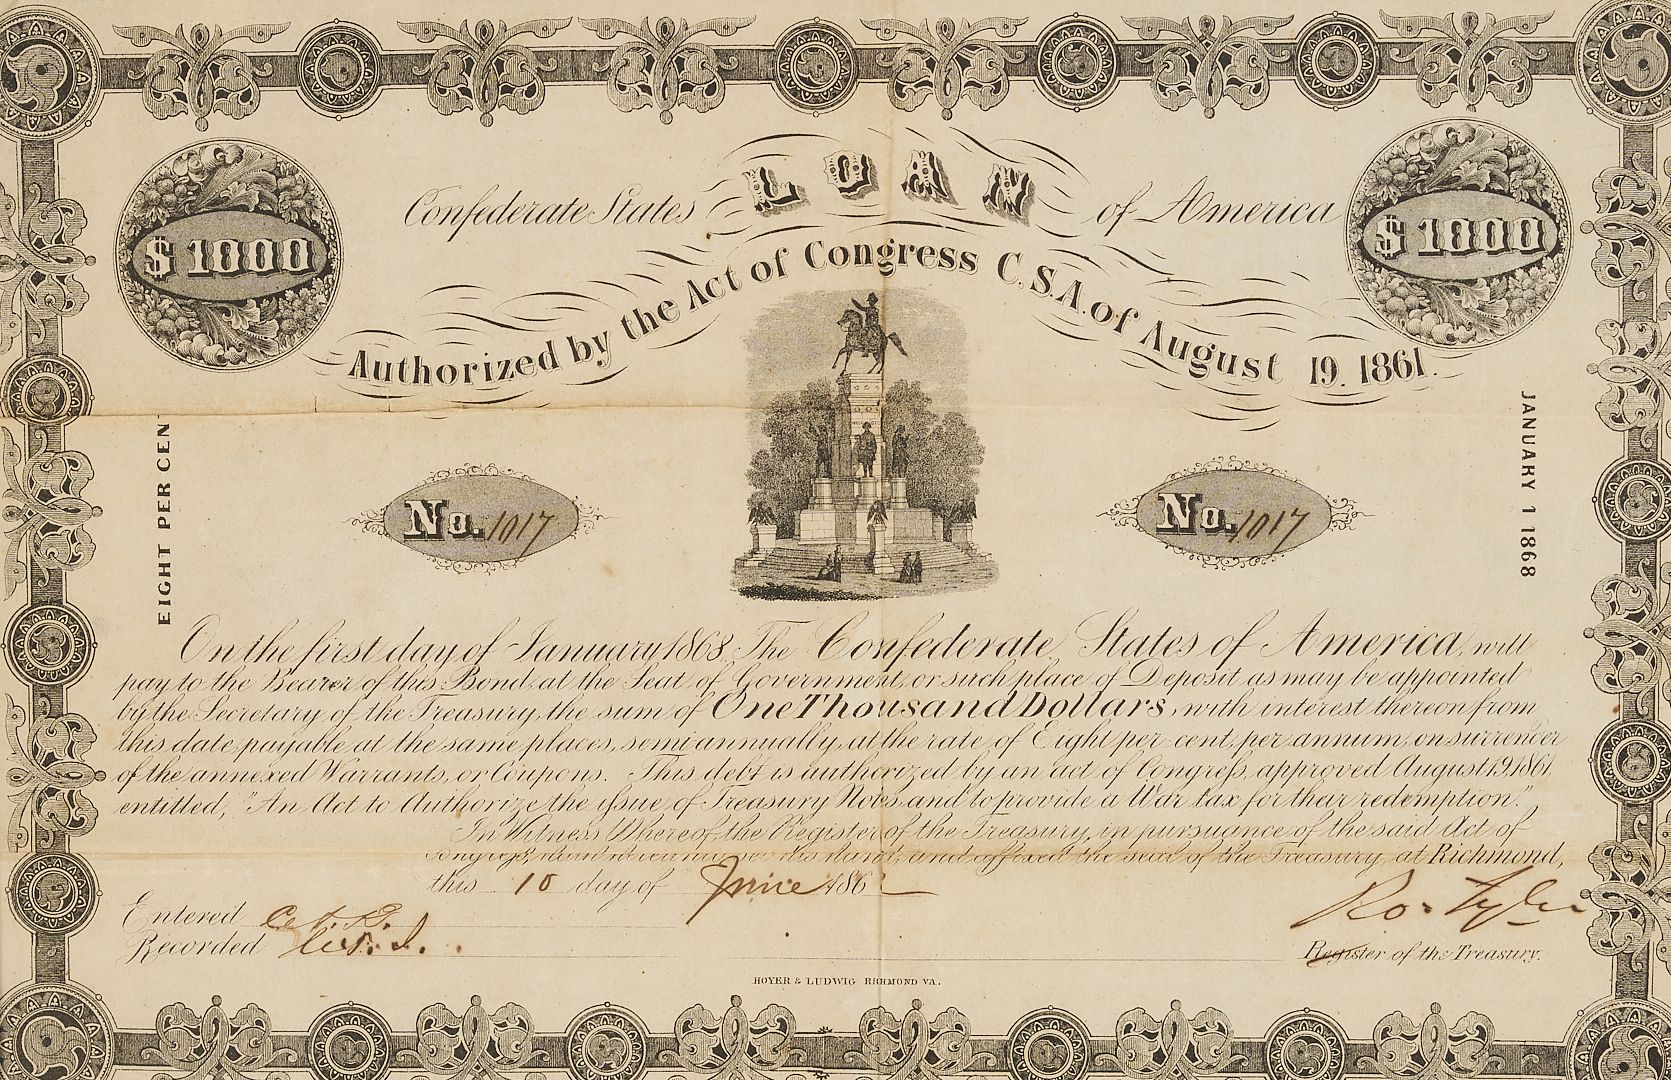 Confederate States LOAN of America
$ 1000
$ 1000
Authorized by the Act of Congress C.S.A. of August 19. 1861.
EIGHT PER CEN
JANUARY 1 1868
No. 1017
No. 1017
On the first day of January 1868 The Confederate States of America, will
pay to the Bearer of this Bond, at the Seat of Government, or such place of Deposit as may be appointed
by the Secretary of the Treasury, the sum of One Thousand Dollars, with interest thereon from
this date payable at the same places, semi annually, at the rate of Eight per cent, per annum, on surrender
of the annexed Warrants, or Coupons. This debt is authorized by an act of Congress, approved August 19, 1861,
entitled, "An Act to Authorize the issue of Treasury Notes and to provide a War tax for their redemption".
In Witness Whereof the Register of the Treasury, in pursuance of the said Act of
and affixed the seal of the Treasury, at Richmond,
this 10 day of June 1862
Entered
Recorded
Ro. Tyler
Register of the Treasury.
HOYER & LUDWIG RICHMOND VA.